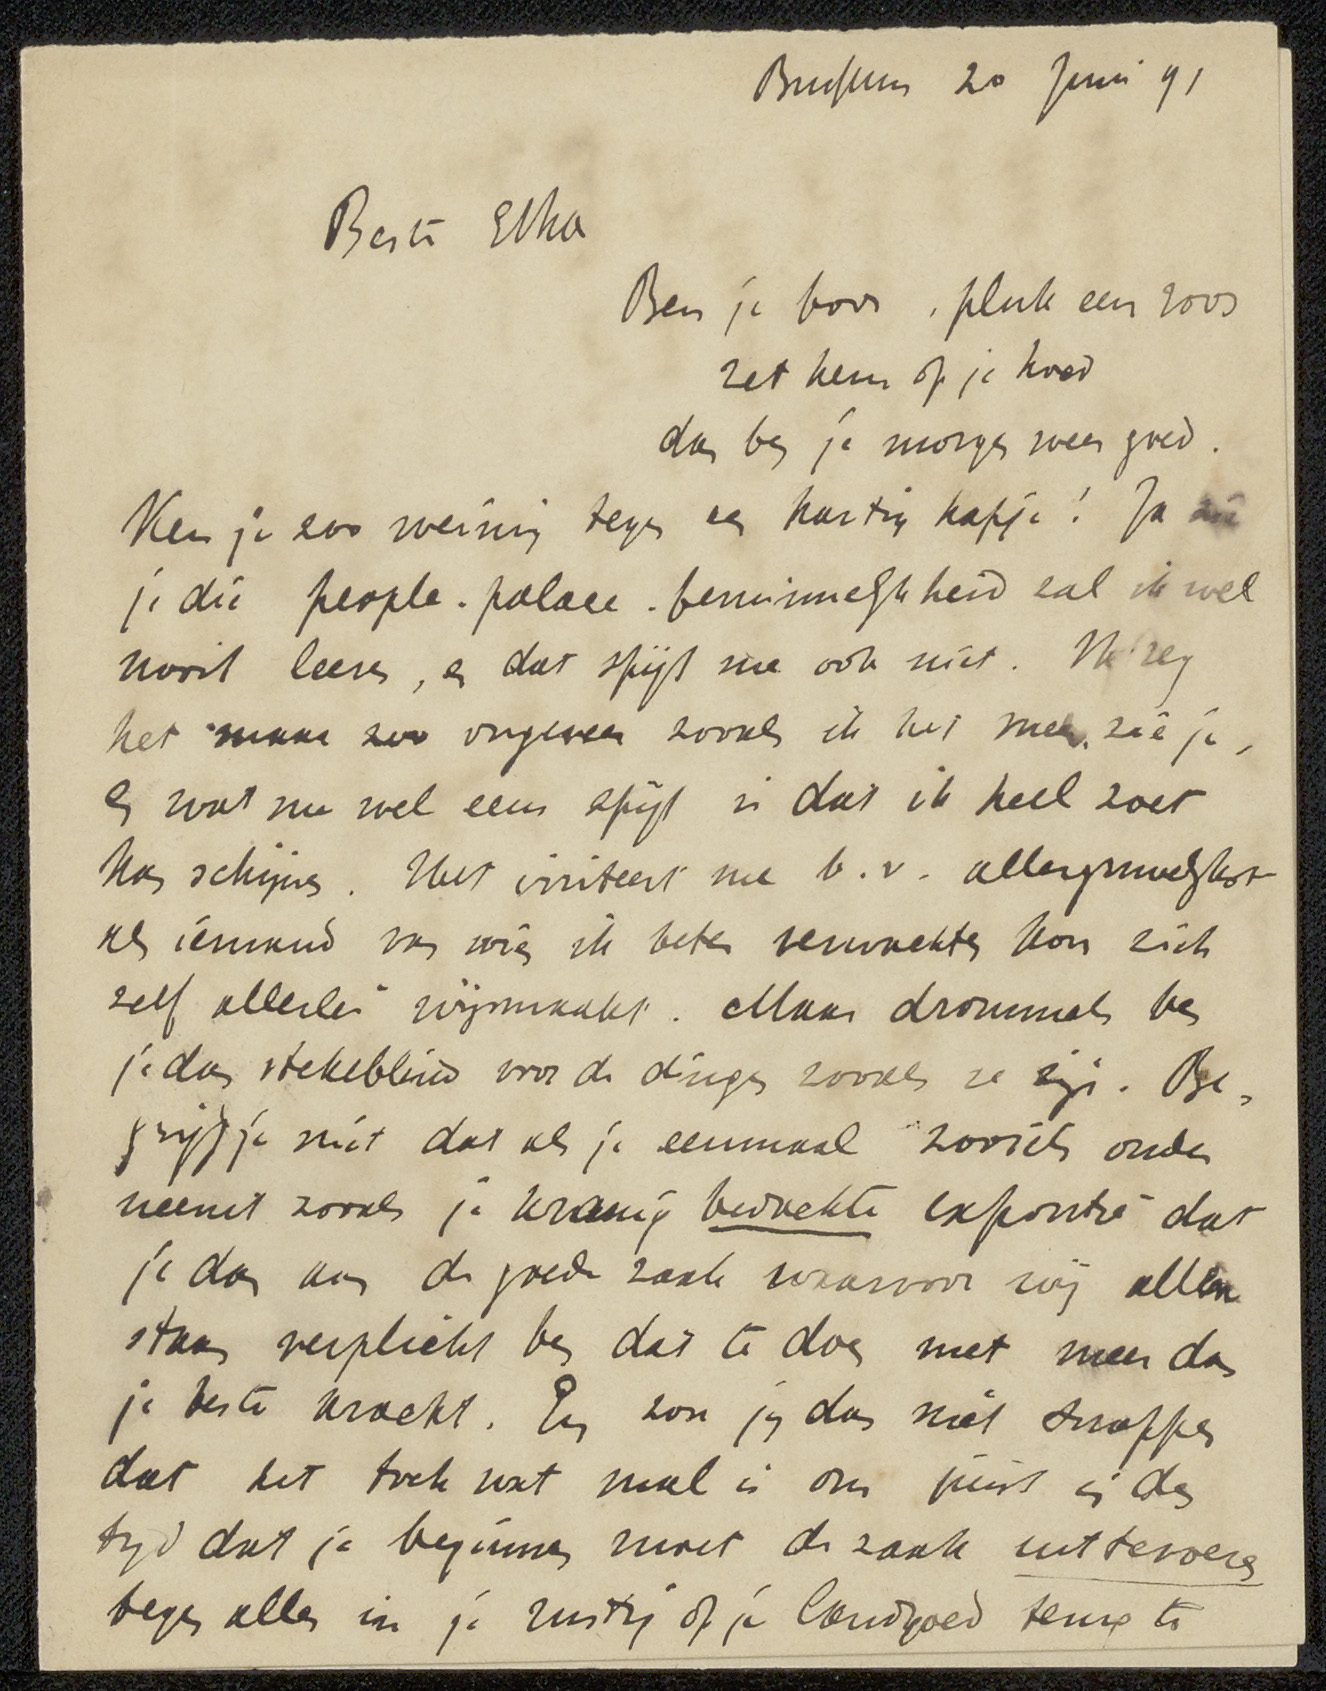 Bussum 20 Juni 91
Beste Etha
Ben je boos, pluk een roos
zet hem op je hoed
dan ben je morgen weer goed.
Ken je zoo weinig tegen een hartig hapje! Ja zie
je die people-palace-beminnelijkheid zal ik wel
nooit leeren, en dat spijt me ook niet. Ik zeg
het maar zoo ongeveer zooals ik het meen, zie je,
en wat me wel eens spijt is dat ik heel zoet
kan schijnen. Het irriteert me b.v. allergruwelijkst
als iemand van wien ik beter verwachten kon zich
zelf allerlei wijsmaakt. Maar drommels ben
je dan stekeblind voor de dingen zooals ze zijn. Be-
grijp je niet dat als je eenmaal zooiets onder
neemt zooals je kranig bedachte expositie dat
je dan aan de goede zaak waarvoor wij allen
staan verplicht ben dat te doen met meer dan
je beste kracht. En zou jij dan niet snappen
dat het toch wat mal is om juist in den
tijd dat je beginnen moet de zaak uittevoeren
tegen alles in je rustig op je landgoed terug te